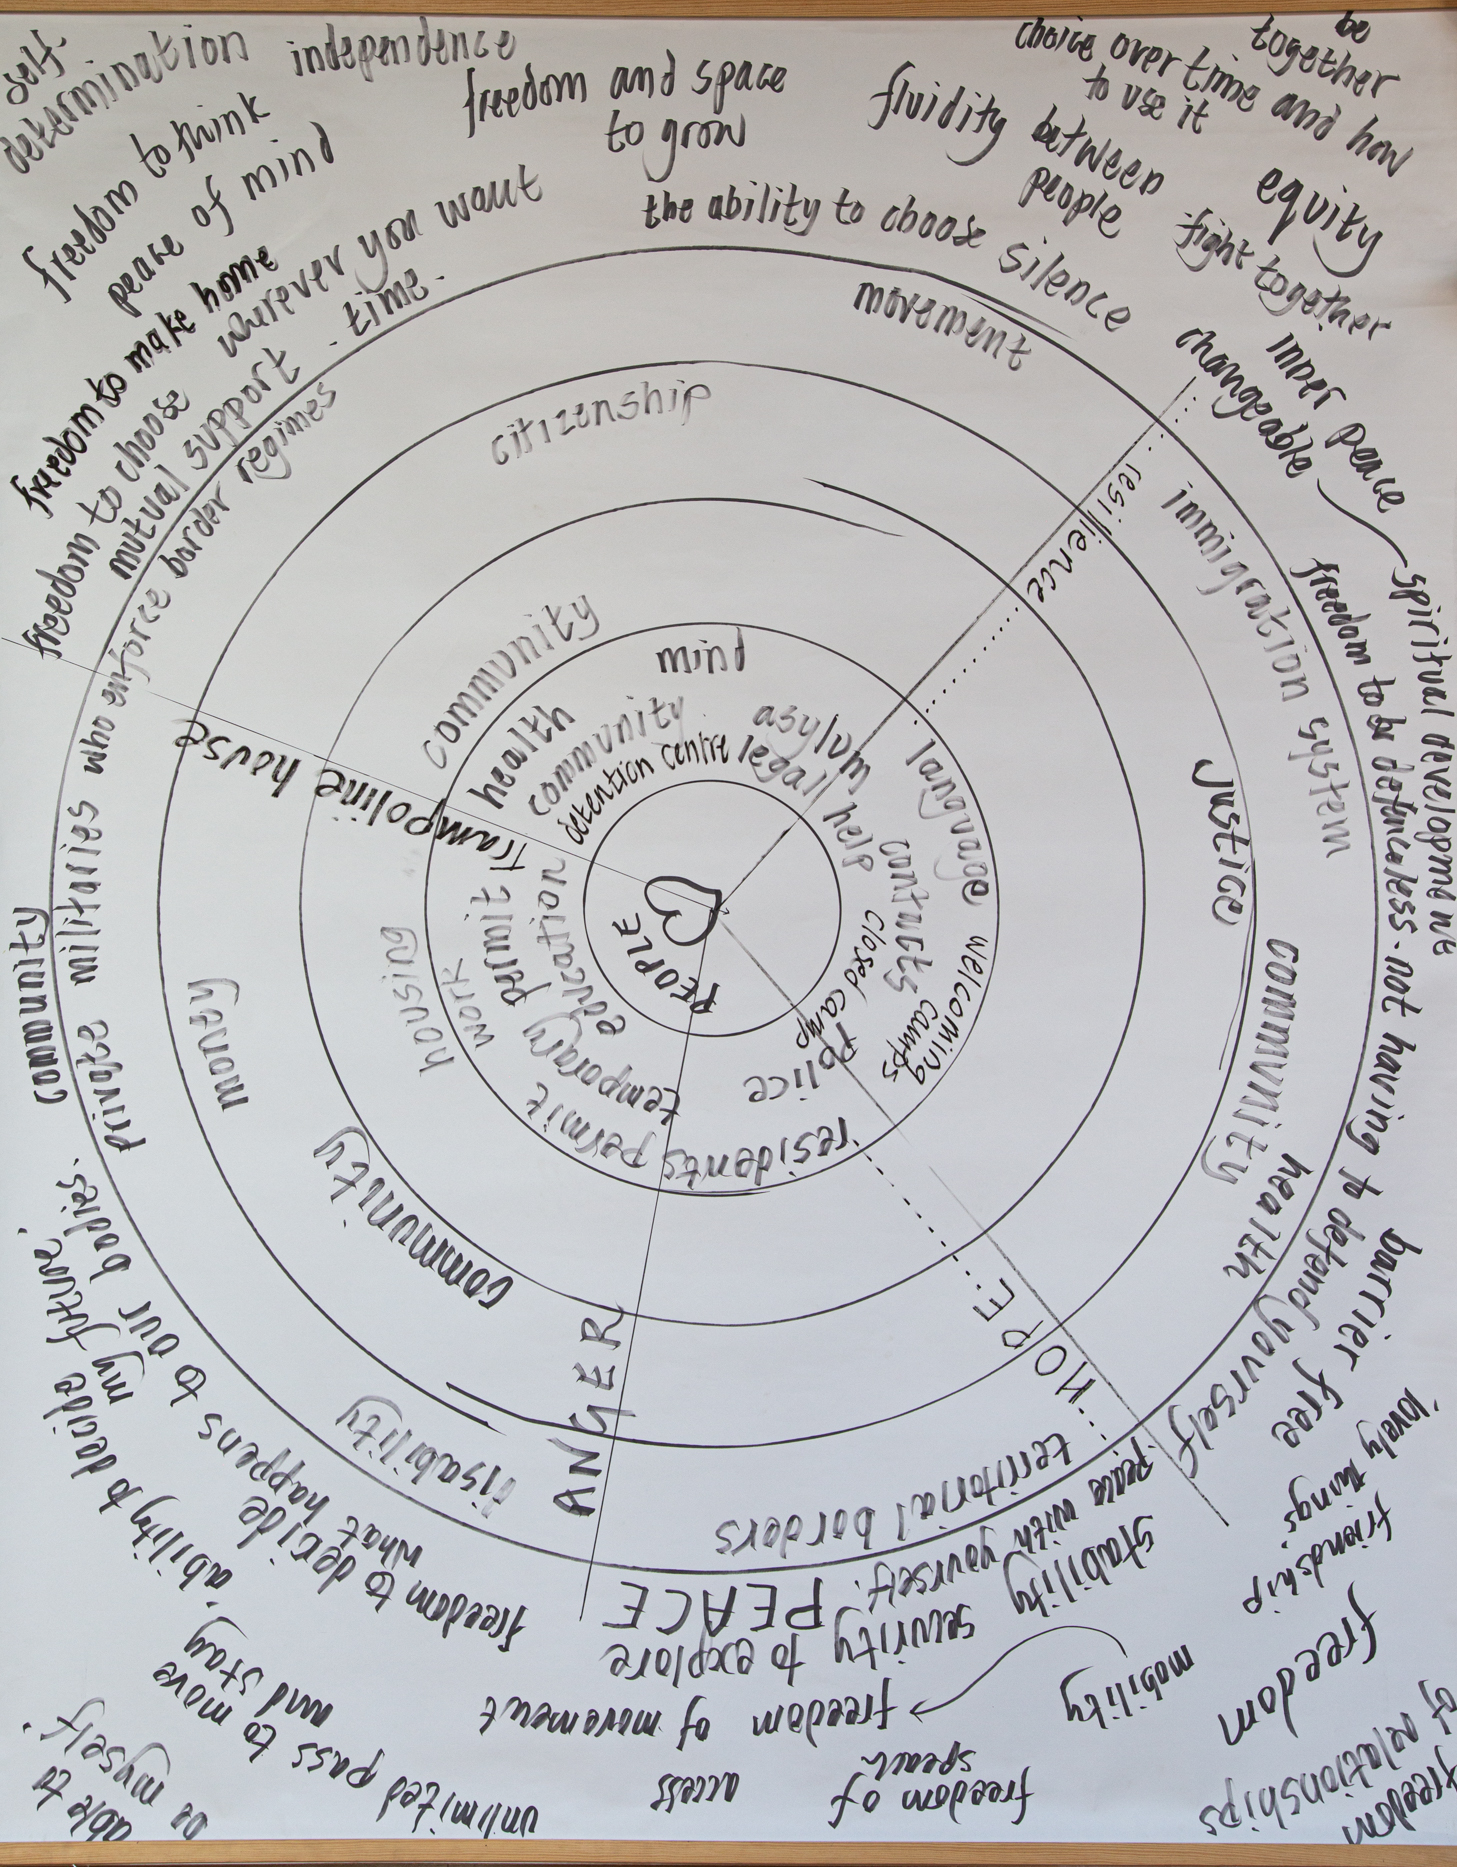 self-
determination
independence
freedom and space
to grow
fluidity between
people
choice over time and how
to use it
be
together
freedom to think
peace of mind
freedom to make home
wherever you want
freedom to choose
mutual support - time.
the ability to choose
silence
equity
fight together
inner peace
changeable
spiritual
freedom to be defenceless. not having to defend yourself
barrier free
'lovely things'
friendship
freedom
freedom
of relationships
mobility
freedom of movement
freedom of
speach
access
unlimited pass to move
and stay
able to
be myself
'ability to decide
my future'
freedom to decide
what happens to our bodies.
community
PEACE
security to explore
stability
peace with yourself.
movement
private militaries who enforce border regimes
immigration system
community
health
territorial borders
disability
citizenship
justice
money
community
community
housing
mind
health
community
detention centre
asylum
legal help
language
contracts
closed camp
welcoming
camps
police
residents permit
temporary permit
education
work
PEOPLE
Trampoline house
resilience
HOPE
ANGER